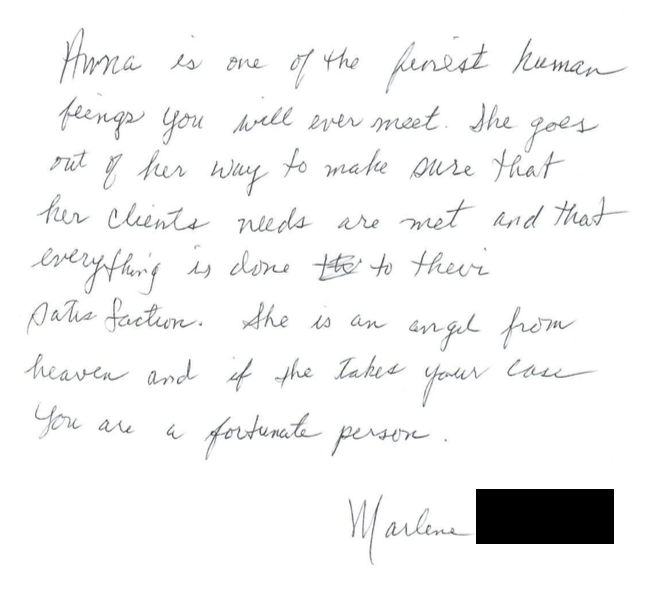 Anna is one of the finest human
beings you will ever meet. She goes
out of her way to make sure that
her clients needs are met and that
everything is done to their
satisfaction. She is an angel from
heaven and if she takes your case
You are a fortunate person.
Marlene